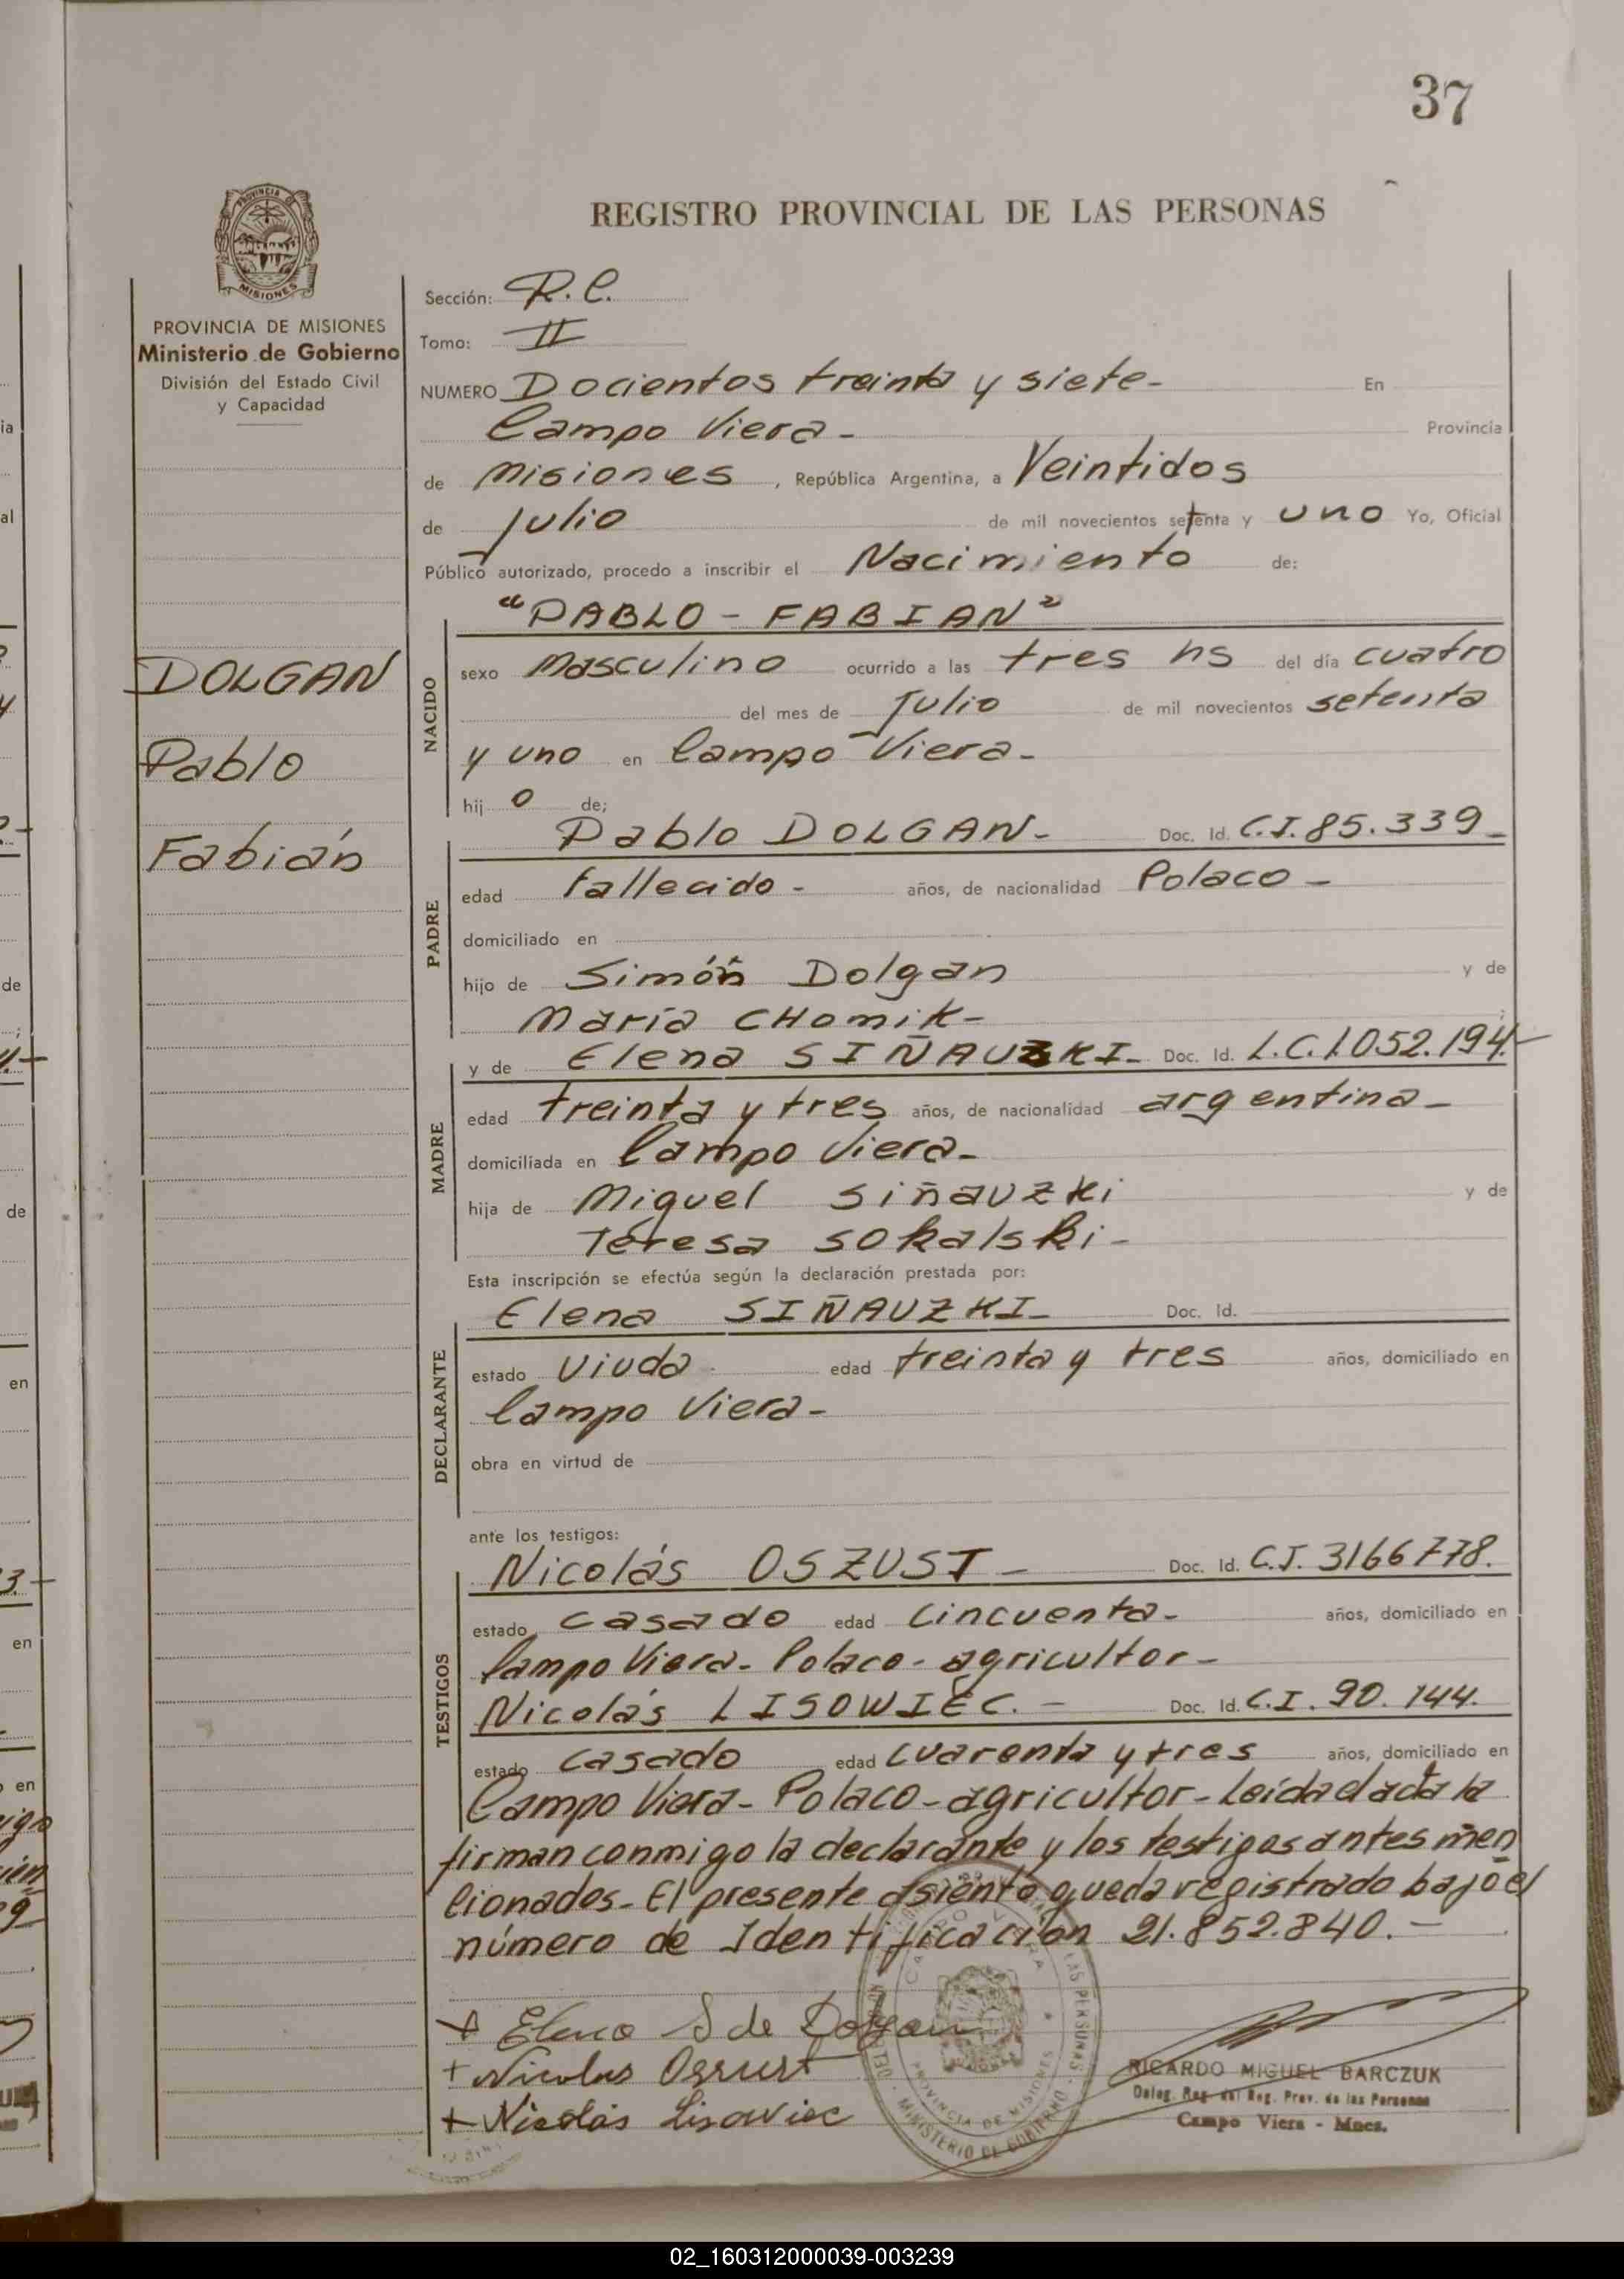 37
REGISTRO PROVINCIAL DE LAS PERSONAS
PROVINCIA DE MISIONES
Ministerio de Gobierno
División del Estado Civil
y Capacidad
DOLGAN
Pablo
Fabián
Sección: R.C.
Tomo: II
NUMERO Docientos treinta y siete- En
Campo Viera- Provincia
de Misiones, República Argentina, a Veintidos
de Julio de mil novecientos setenta y uno Yo, Oficial
Público autorizado, procedo a inscribir el Nacimiento de:
NACIDO
"PABLO - FABIAN"
sexo Masculino ocurrido a las tres hs del día cuatro
del mes de Julio de mil novecientos setenta
y uno en Campo Viera-
hijo de;
PADRE
Pablo DOLGAN- Doc. Id. C.I.85.339-
edad fallecido- años, de nacionalidad Polaco-
domiciliado en
hijo de Simón Dolgan y de
María CHOMIK-
MADRE
y de Elena SIÑAUZKI- Doc. Id. L.C.1.052.194.-
edad treinta y tres años, de nacionalidad argentina-
domiciliada en Campo Viera-
hija de Miguel Siñauzki y de
Teresa Sokalski-
Esta inscripción se efectúa según la declaración prestada por:
DECLARANTE
Elena SIÑAUZKI- Doc. Id.
estado Viuda edad treinta y tres años, domiciliado en
Campo Viera-
obra en virtud de
ante los testigos:
TESTIGOS
Nicolás OSZUST- Doc. Id. C.I. 3166778.
estado casado edad cincuenta- años, domiciliado en
Campo Viera- Polaco- agricultor-
Nicolás LISOWIEC.- Doc. Id. C.I. 90.144.
estado casado edad cuarenta y tres años, domiciliado en
Campo Viera- Polaco- agricultor- Leída el acta la
firman conmigo la declarante y los testigos antes men
cionados- El presente asiento queda registrado bajo el
número de Identificación 21.852.840.-
+ Elena S de Dolgan
+ Nicolas Oszust
+ Nicolás Lisowiec
RICARDO MIGUEL BARCZUK
Deleg. Reg. del Reg. Prov. de las Personas
Campo Viera - Mnes.
02_160312000039-003239